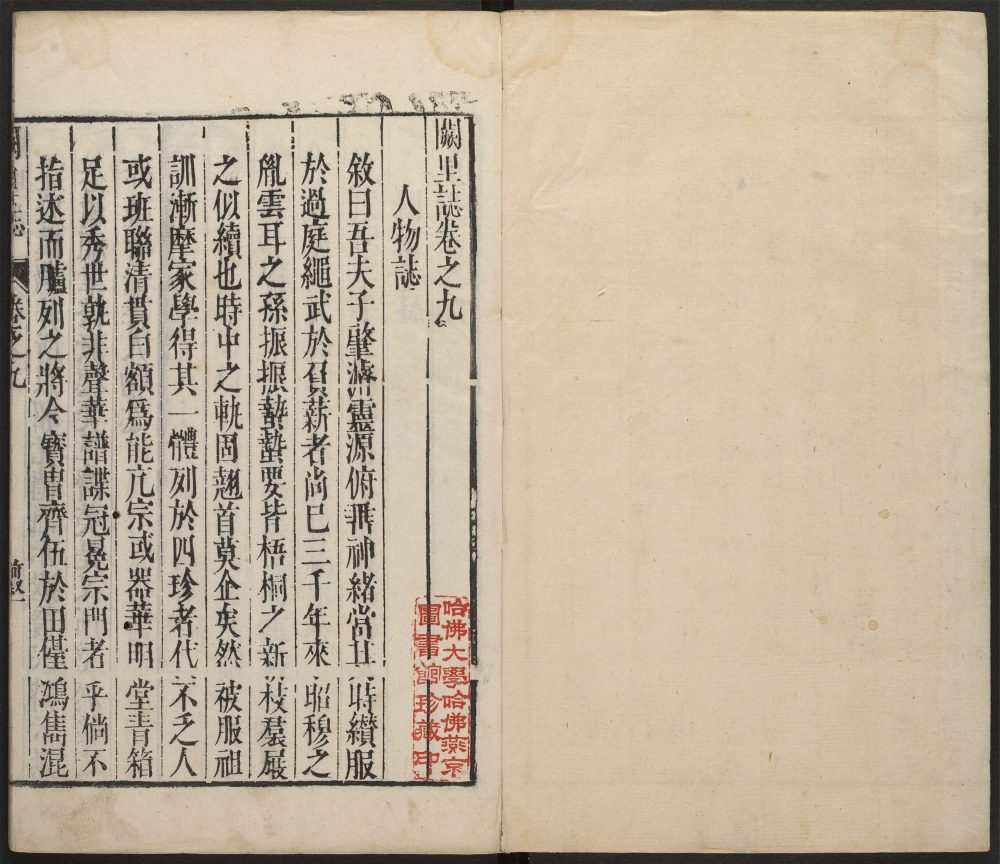 闕里誌卷之九
人物誌
敘曰吾夫子肇濬靈源俯垂神緒當其時纘服
於過庭繩武於負薪者尚已三千年來昭穆之
胤雲耳之孫振振蟄蟄要皆梧桐之新枝羣嚴
之似續也時中之軌固翹首莫企矣然被服祖
訓漸摩家學得其一體列於四珍者代不乏人
或班聯清貫白額爲能亢宗或器華明堂青箱
足以秀世孰非聲華譜諜冠冕宗門者乎倘不
指述而臚列之將令寶胄齊伍於田儓鴻雋混
里誌
卷之九
哈佛大學哈佛燕京
圖書館珍藏印